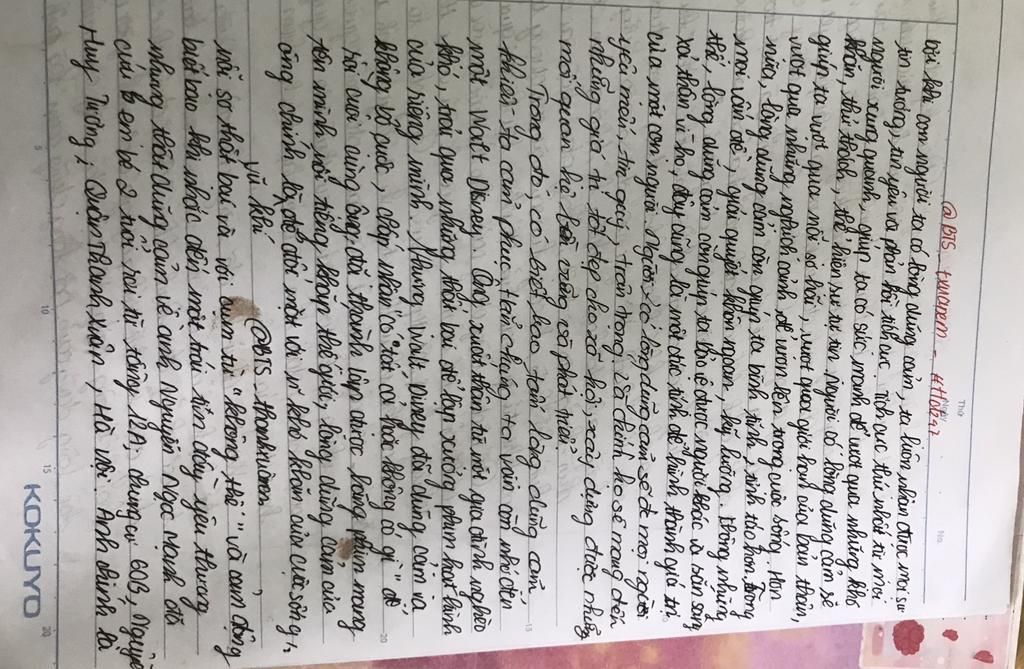 Thứ
Ngày
No.
@BTS_txuanem - #Hoc247
Bởi khi con người ta có lòng dũng cảm, ta luôn nhận được mọi sự
tin tưởng, tin yêu và phản hồi tích cực nhất cả thứ nhất từ mọi
người xung quanh, giúp ta có sức mạnh để vượt qua những khó
khăn, thử thách, thể hiện sự tự tin. Người có lòng dũng cảm sẽ
giúp ta vượt qua nỗi sợ hãi, vượt qua giới hạn của bản thân,
vượt qua những nghịch cảnh để vươn lên trong cuộc sống. Hơn
nữa, lòng dũng cảm còn giúp ta bình tĩnh, tỉnh táo hơn trong
mọi vấn đề, giải quyết khôn ngoan, kỹ lưỡng. Không những
thế, lòng dũng cảm còn giúp ta bảo vệ được người khác và sẵn sàng
xả thân vì họ, đây cũng là một đức tính để hình thành giá trị
của một con người. Người có lòng dũng cảm sẽ được mọi người
yêu mến, tin quý, trân trọng, và chính họ sẽ mang đến
những giá trị tốt đẹp cho xã hội, xây dựng được những
mối quan hệ bền vững và phát triển.
Trong đó, có biết bao tấm lòng dũng cảm,
khiến ta cảm phục, tại chúng ta vẫn còn nhớ đến
một Walt Disney. Ông xuất thân từ một gia đình nghèo
khó, trải qua những thất bại để lập xưởng phim hoạt hình
của riêng mình. Nhưng Walt Disney đã dũng cảm và
không bỏ cuộc, chấp nhận có "tất cả hoặc không có gì" để
rồi cuối cùng ông đã thành lập được hãng phim mang
tên mình nổi tiếng khắp thế giới, lòng dũng cảm của
ông chính là vũ khí để đối mặt với khó khăn của cuộc sống,
@BTS_thanhxuan
nỗi sợ thất bại và với cụm từ "không thể" và cảm động
biết bao khi nhắc đến một trái tim đầy yêu thương
nhưng thật dũng cảm về anh Nguyễn Ngọc Mạnh đã
cứu em bé 2 tuổi rơi từ tầng 12A, chung cư 60B, Nguyễn
Huy Tưởng, Quận Thanh Xuân, Hà Nội. Anh chính là
5
10
15
20
15
20
KOKUYO